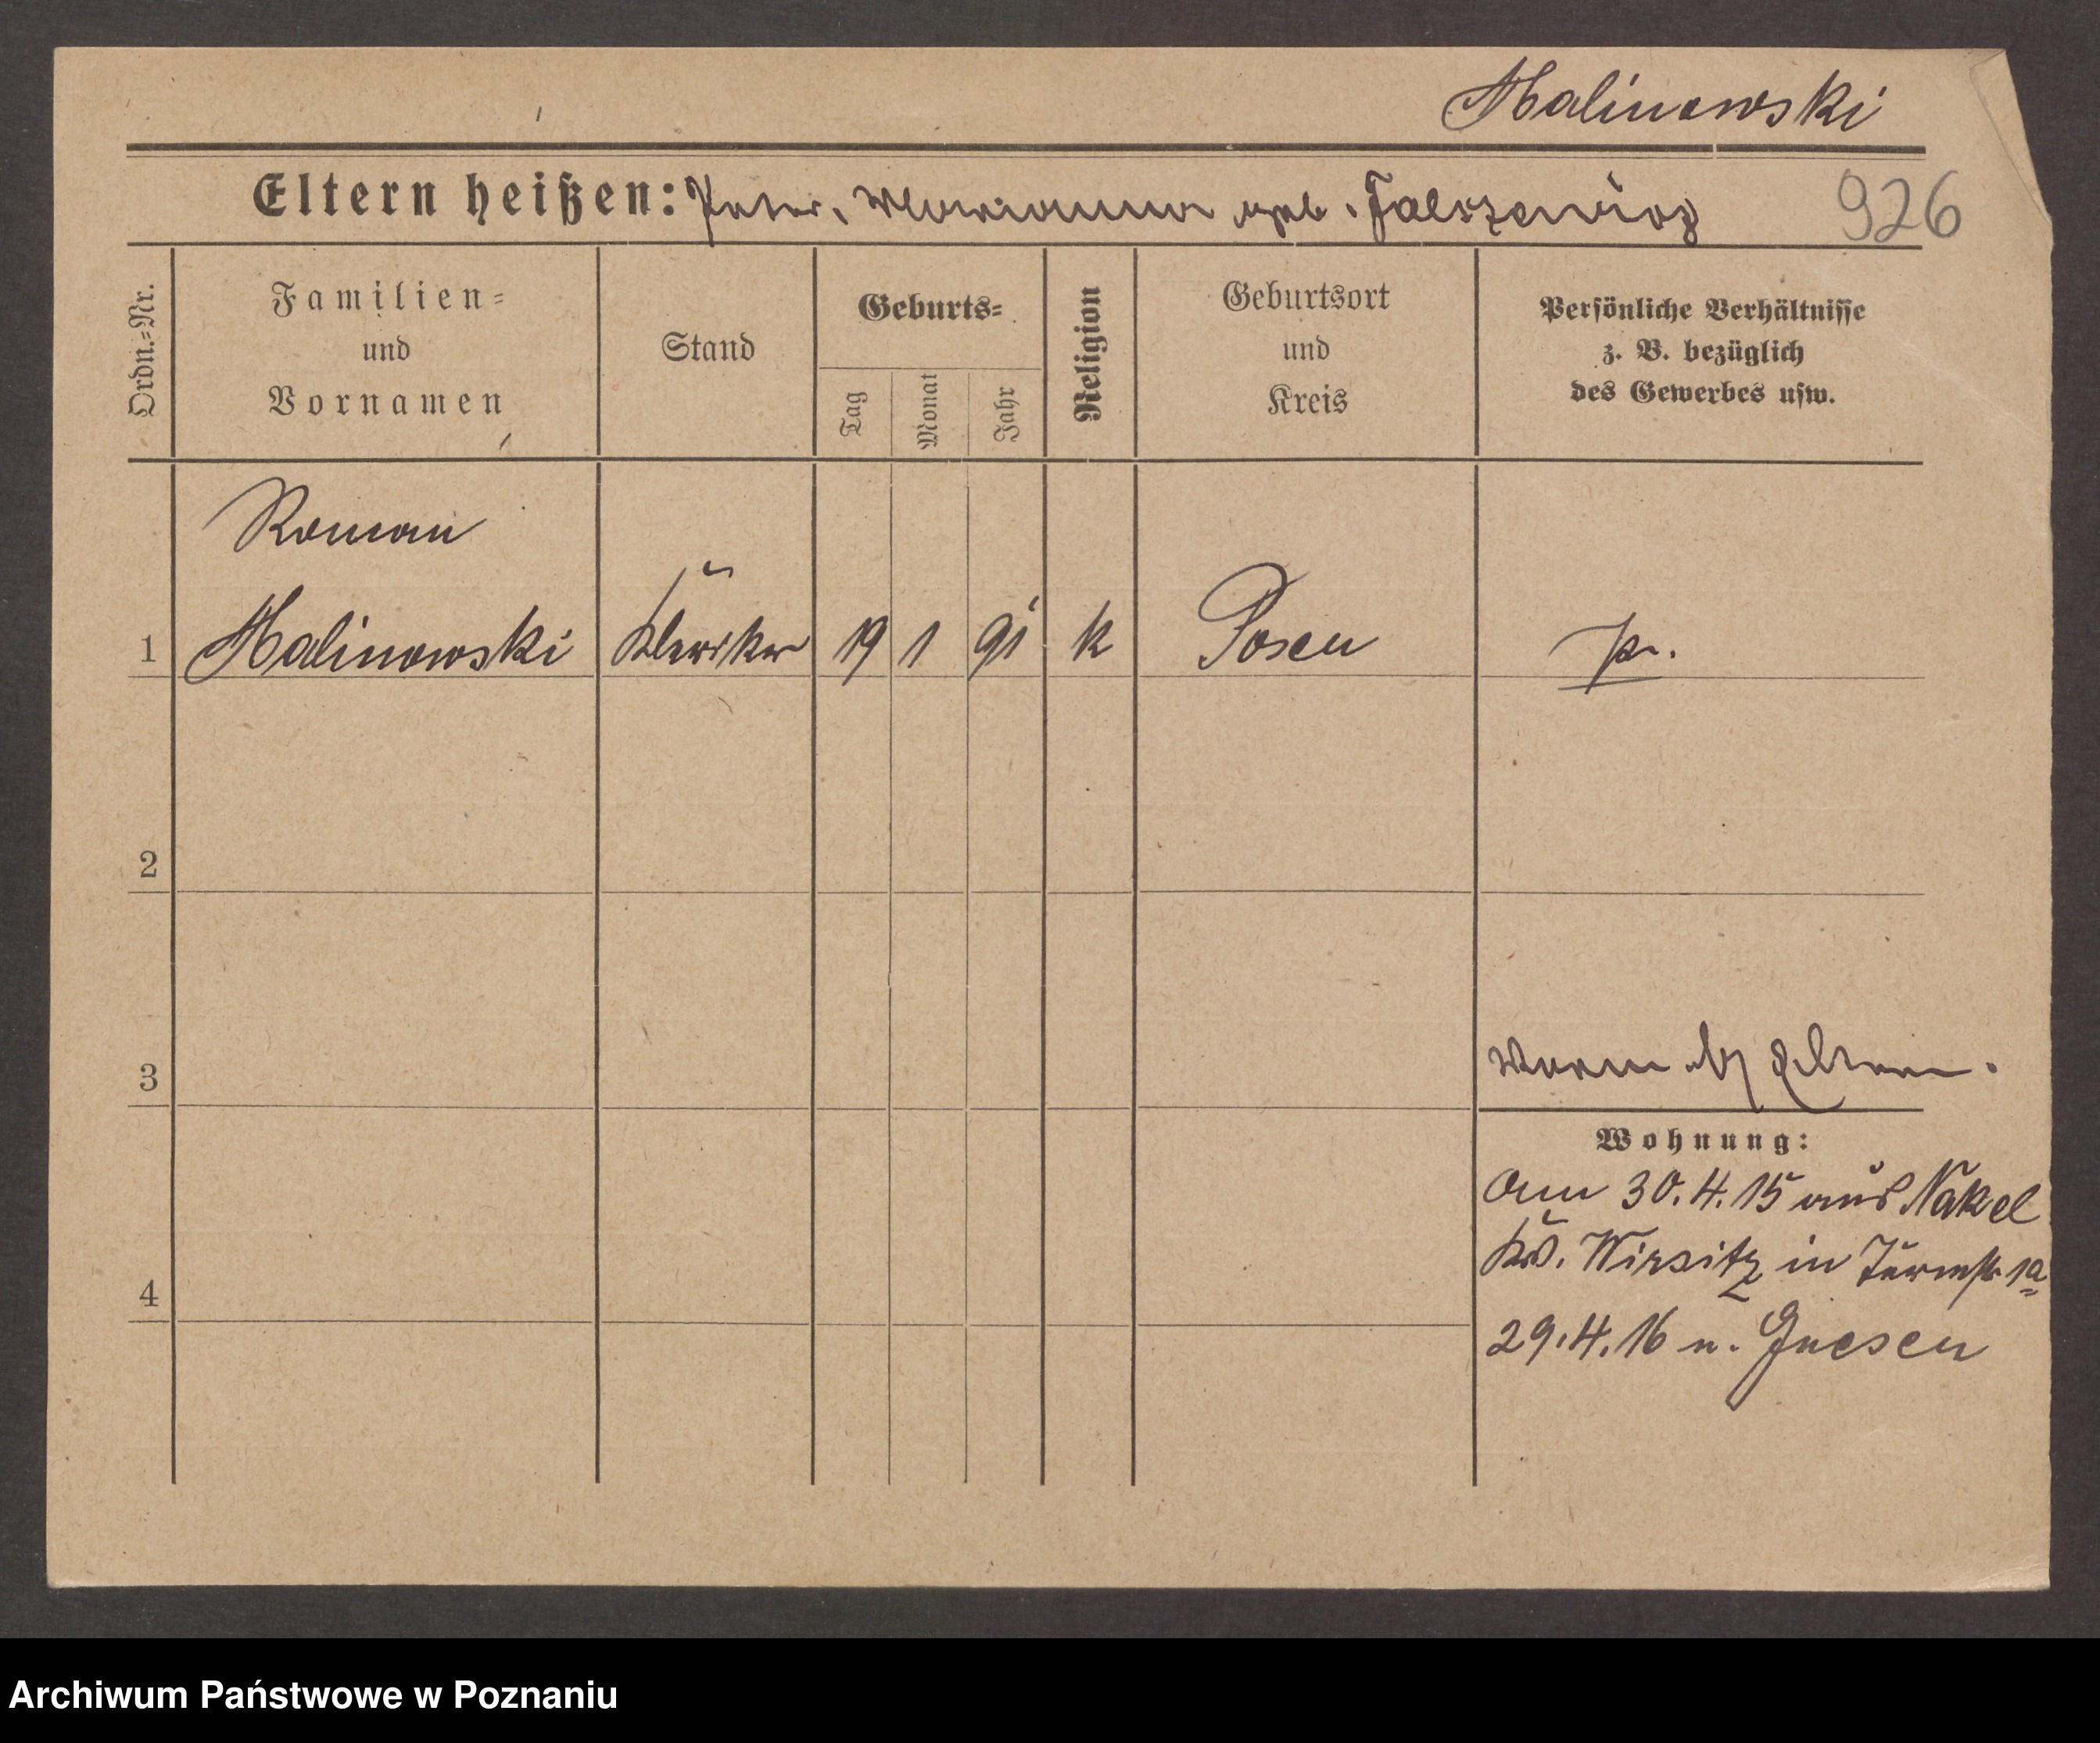 Malinowski
Eltern heißen: Peter, Marianna geb. Falszewicz
926
Ordn.=Nr.
Familien=
und
Vornamen
Stand
Geburts=
Tag
Monat
Jahr
Religion
Geburtsort
und
Kreis
Persönliche Verhältnisse
z. B. bezüglich
des Gewerbes usw.
Roman
1 Malinowski Kleriker 19 1 91 k Posen pr.
2
3
Eltern.
Wohnung:
Am 30.4.15 aus Nakel
Kr. Wirsitz in Turmstr 1a
4
29.4.16 n. Gnesen
Archiwum Państwowe w Poznaniu